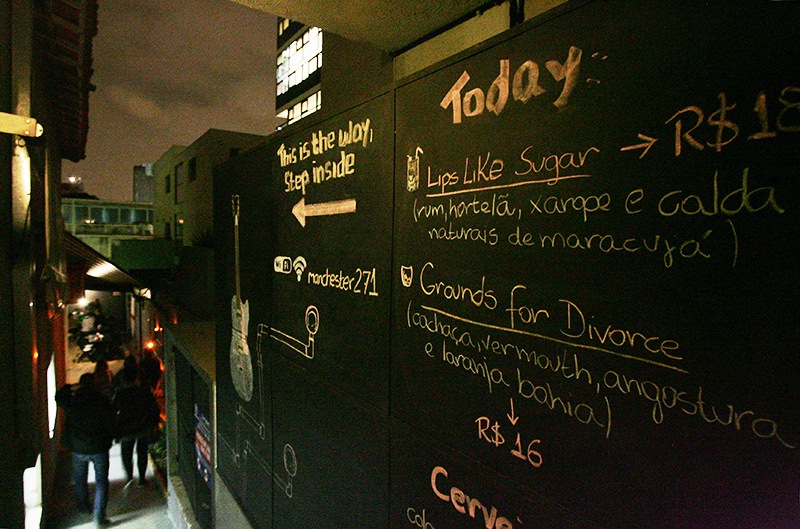 This is the way,
Step inside
WiFi manchester271
Today
Lips Like Sugar → R$ 18
(rum, hortelã, xarope e calda
naturais de maracujá)
Grounds for Divorce
(cachaça, vermouth, angostura
e laranja bahia)
R$ 16